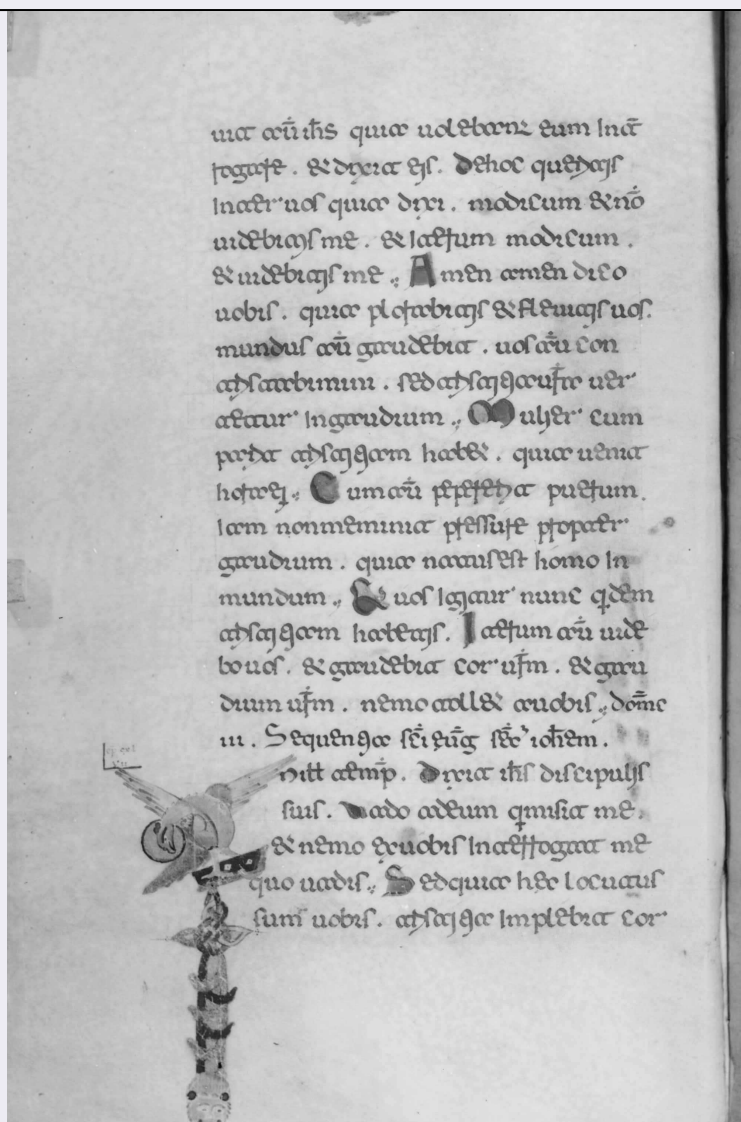 uit aū ihs quia volebant eum int̄
rogare . et dixit eis. De hoc queritis
inter vos quia dixi . modicum et nō
videbitis me . et iterum modicum .
et videbitis me . Amen amen dico
vobis . quia plorabitis et flevitis vos.
mundus aū gaudebit . vos aū con
tristabimini . sed tristitia ur̄a ver
tetur in gaudium . Mulier cum
parit tristitiam habet . quia venit
hora ei . Cum aū pepererit puerum .
iam non meminit pressure propter
gaudium . quia natus est homo in
mundum . Et vos igitur nunc qdem
tristitiam habetis . Iterum aū vide
bo vos . et gaudebit cor ur̄m . et gau
dium ur̄m . nemo tollet a vobis . dom̄c
iii . Sequentia sc̄i eūg sēc ioh̄em .
N ill temp̄ . Dixit ihs discipulis
suis . Vado ad eum q misit me .
et nemo ex vobis interrogat me
quo vadis . Sed quia hec locutus
sum vobis . tristitia implebit cor